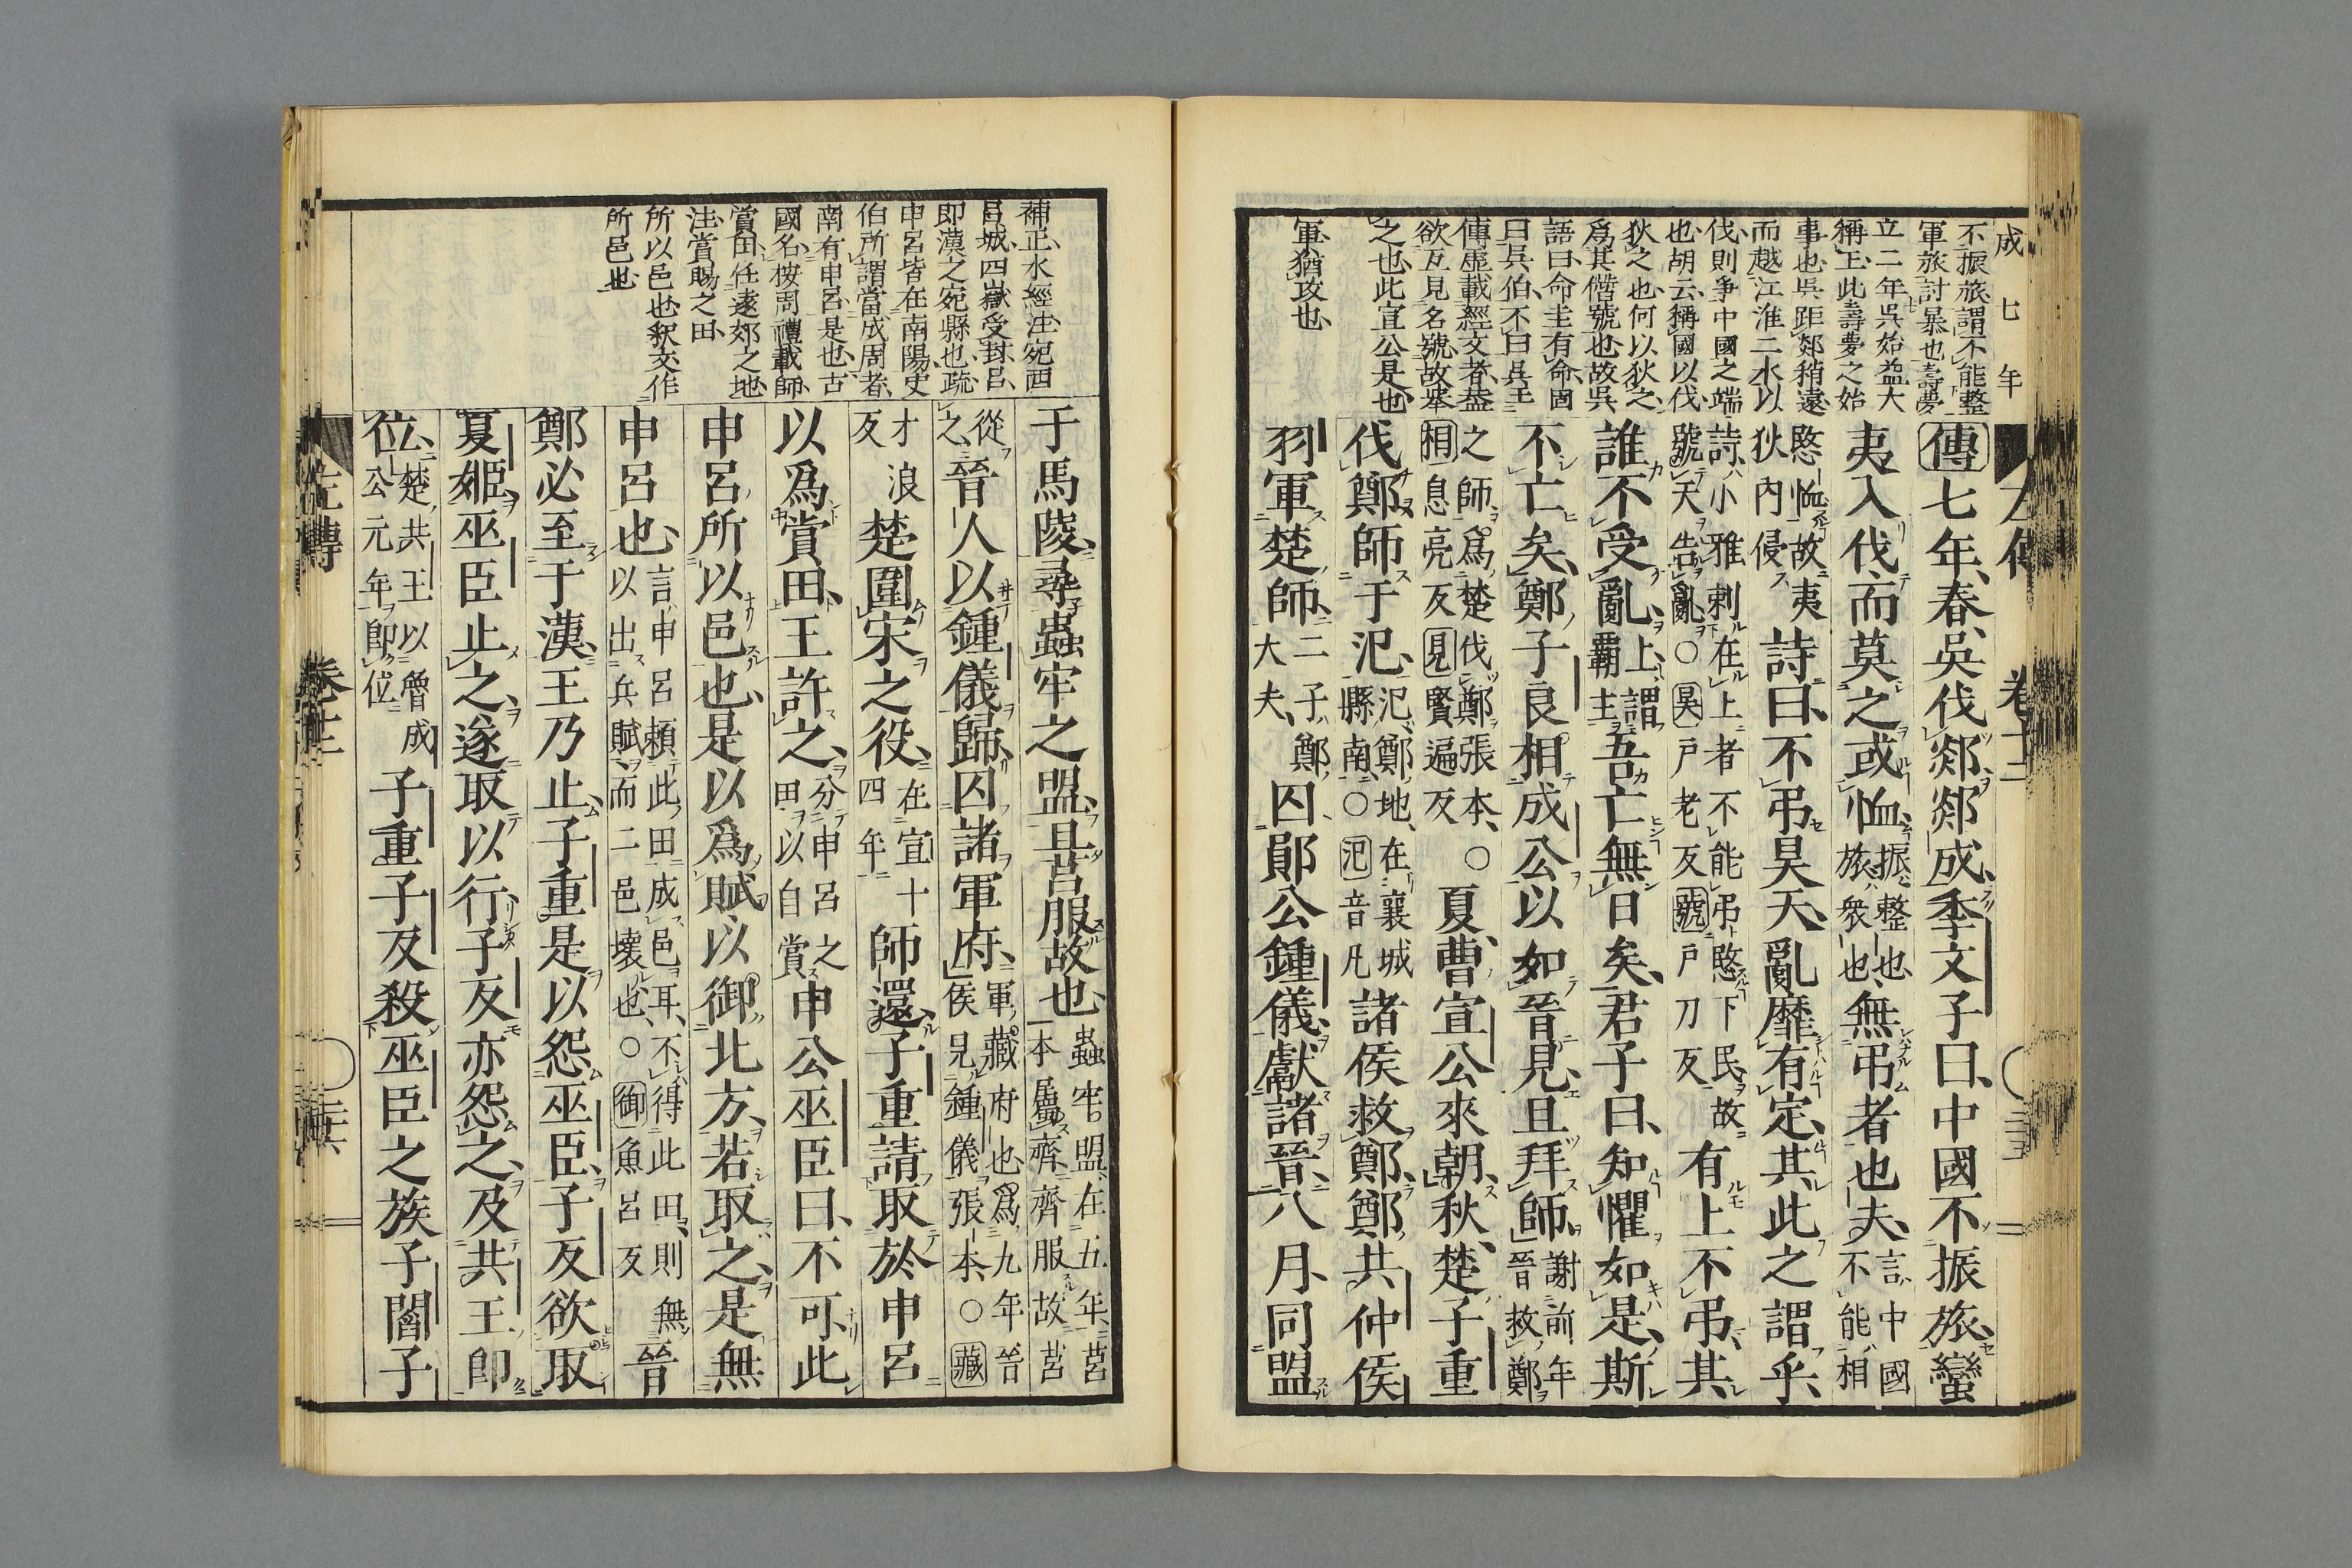 成七年
不振旅謂不能整
軍旅討暴也壽夢
立二年吳始益大
稱王此壽夢之始
事也吳距郯稍遠
而越江淮二水以
伐則爭中國之端
也胡云稱國以伐
狄之也何以狄之
爲其僭號也故吳
語曰命圭有命固
曰吳伯不曰吳王
傳虛載經文者葢
欲互見名號故舉
之也此宣公是也
軍猶攻也
傳七年春吳伐郯郯成季文子曰中國不振旅蠻
夷入伐而莫之或恤振整也旅衆也無弔者也夫言中國不能相
愍恤故夷狄內侵詩曰不弔昊天亂靡有定其此之謂乎
詩小雅刺在上者不能弔愍下民故號天告亂○昊戸老反號戸刀反有上不弔其
誰不受亂上謂霸主吾亡無日矣君子曰知懼如是斯
不亡矣鄭子良相成公以如晉見且拜師謝前年晉救鄭
之師爲楚伐鄭張本○相息亮反見賢遍反夏曹宣公來朝秋楚子重
伐鄭師于氾氾鄭地在襄城縣南○氾音凡諸侯救鄭鄭共仲侯
羽軍楚師二子鄭大夫囚鄖公鍾儀獻諸晉八月同盟
補正水經注宛西
呂城四嶽受封呂
即漢之宛縣也疏
申呂皆在南陽史
伯所謂當成周者
南有申呂是也古
國名按周禮載師
賞田任遠郊之地
注賞賜之田
所以邑也釈文作
所邑也
于馬陵尋蟲牢之盟且莒服故也蟲牢盟在五年莒本屬齊齊服故莒
從之晉人以鍾儀歸囚諸軍府軍藏府也爲九年晉侯見鍾儀張本○藏
才浪反楚圍宋之役在宣十四年師還子重請取於申呂
以爲賞田王許之分申呂之田以自賞申公巫臣曰不可此
申呂所以邑也是以爲賦以御北方若取之是無
申呂也言申呂賴此田成邑耳不得此田則無以出兵賦而二邑壞也○御魚呂反晉
鄭必至于漢王乃止子重是以怨巫臣子反欲取
夏姬巫臣止之遂取以行子反亦怨之及共王即
位楚共王以魯成公元年即位子重子反殺巫臣之族子閻子
左傳 卷十二